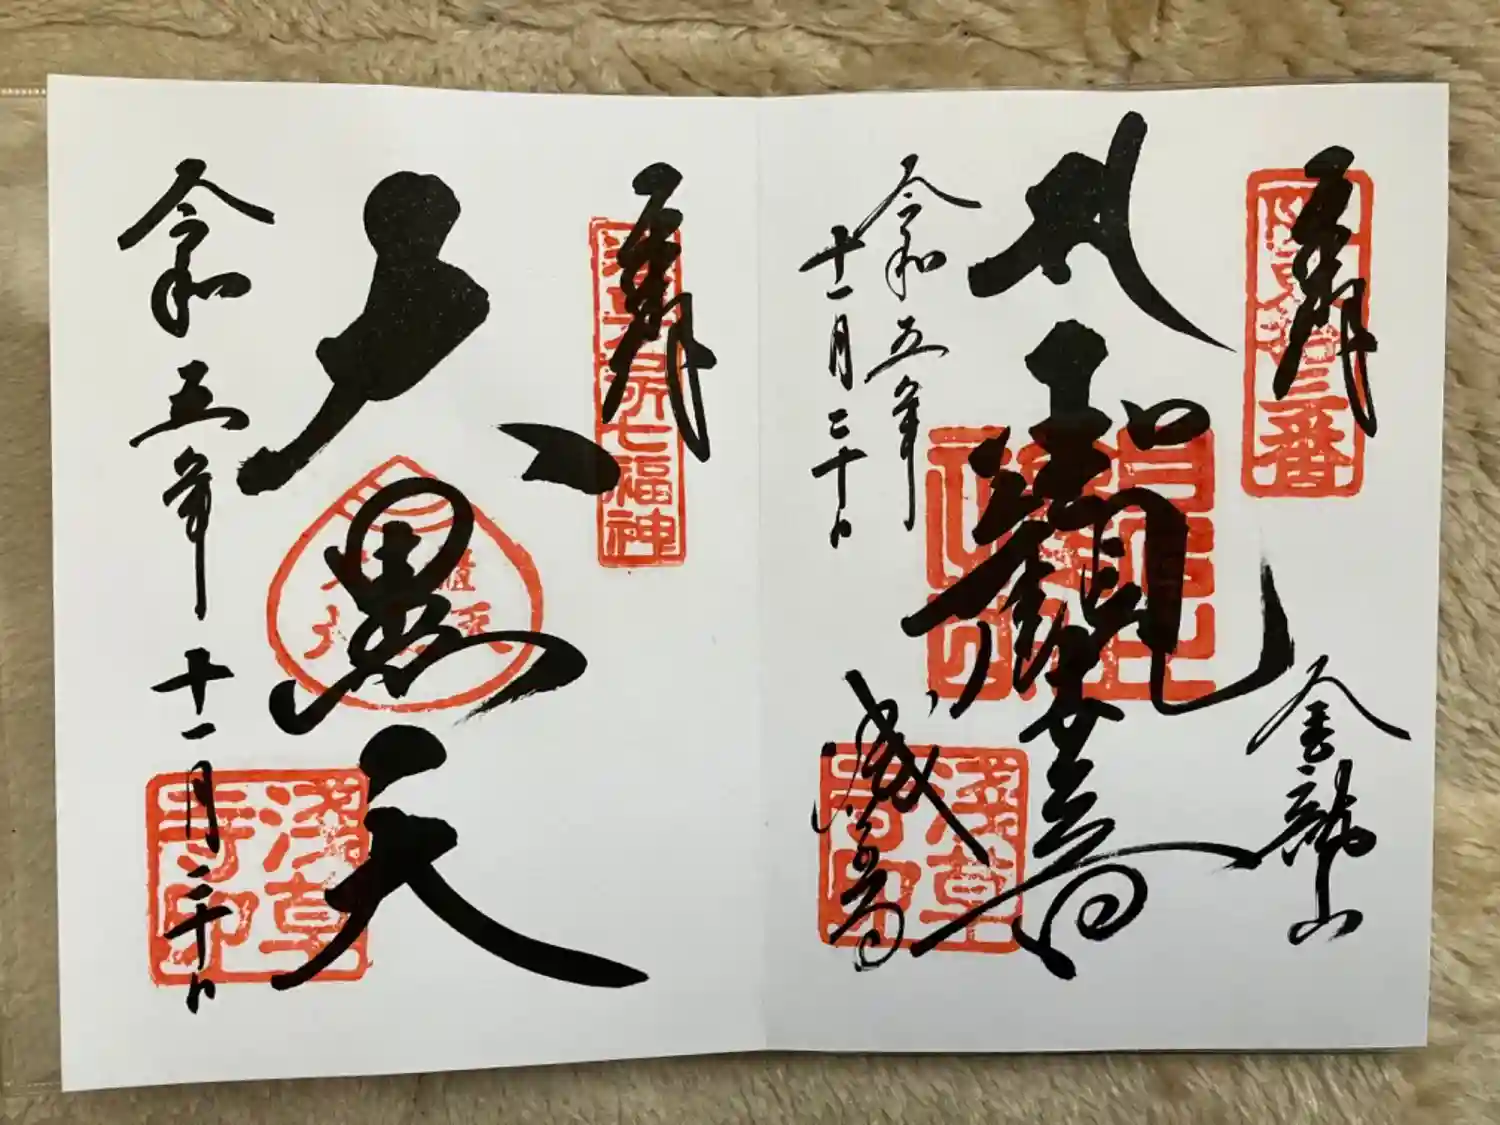 奉拝
阪東拾三番
金龍山
聖観世音
浅草寺
淺草寺印
令和五年
十一月二十日
奉拝
浅草名所七福神
大黒天
令和五年十一月二十日
淺草寺印